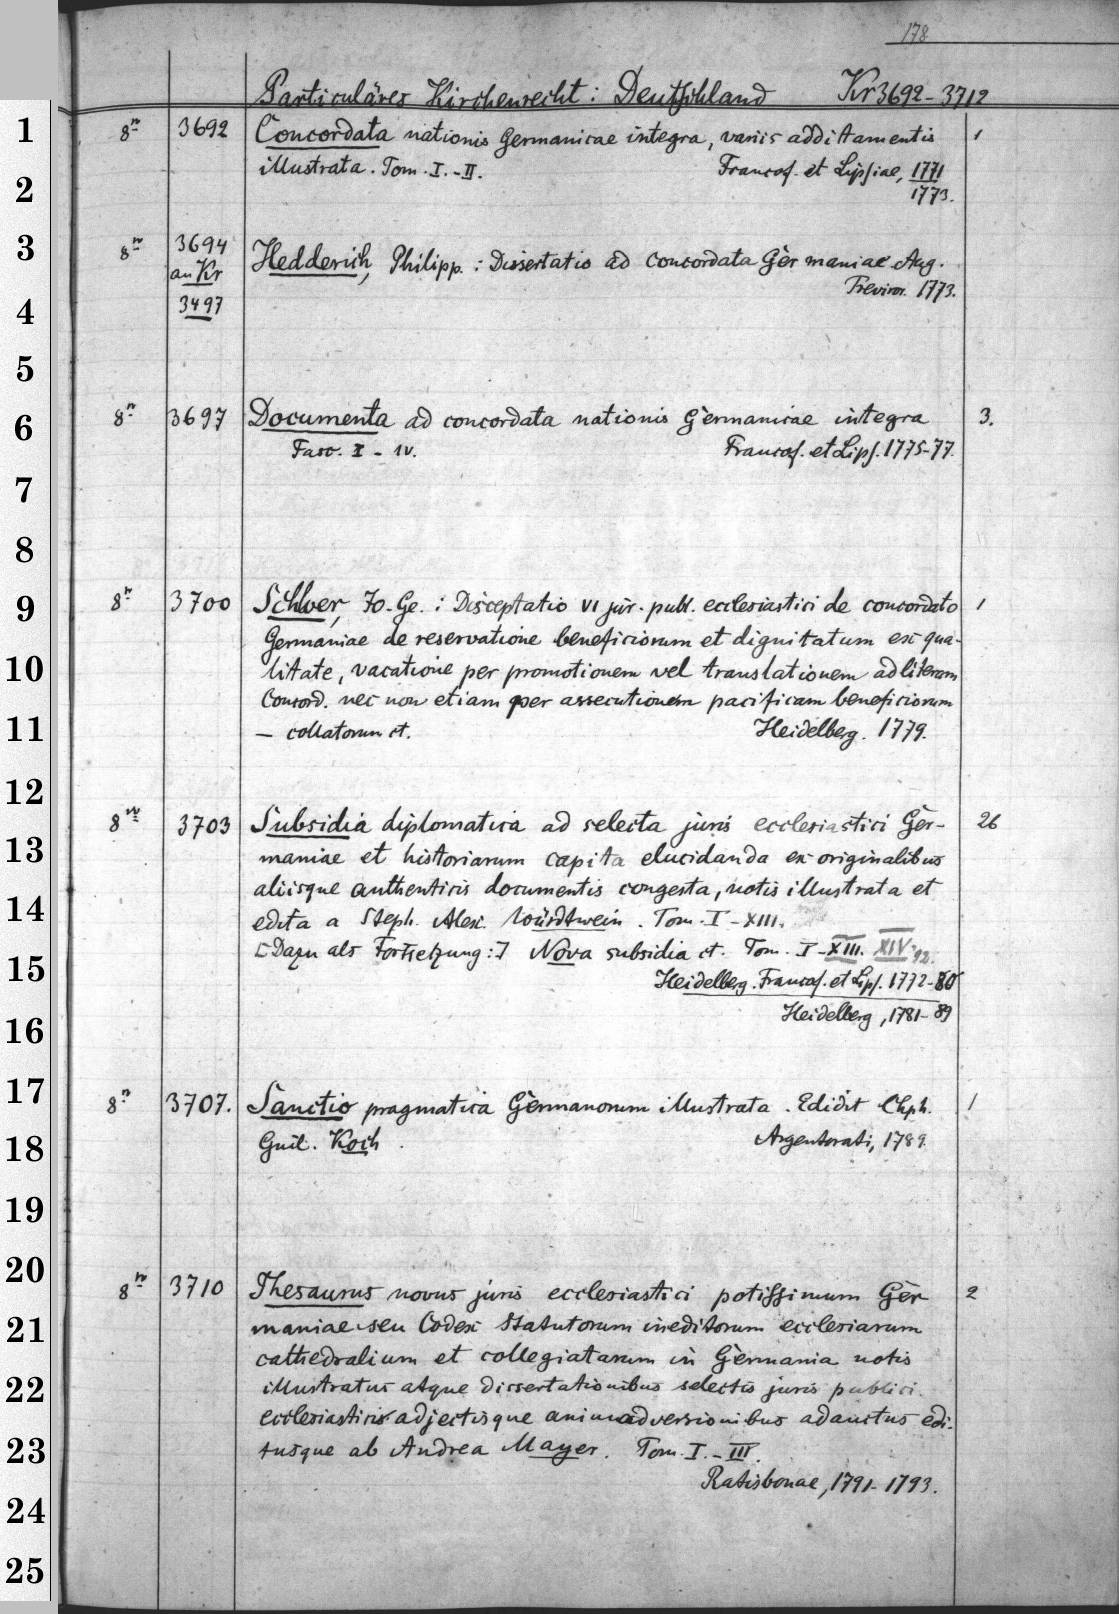 178
Particuläres Kirchenrecht: Deutschland Kr 3692-3712
1 8º 3692 Concordata nationis Germanicae integra, variis additamentis 1
illustrata. Tom. I.-II. Francof. et Lipsiae, 1771
2 1773.
3 8º 3694 Hedderich, Philipp.: Dissertatio ad concordata Germaniae Aug.
an Kr Treviror. 1773.
4 3497
5
6 8º 3697 Documenta ad concordata nationis Germanicae integra 3.
Fasc. I - IV. Francof. et Lips. 1775-77.
7
8
9 8º 3700 Schloer, Fo. Ge.: Disceptatio VI jur. publ. ecclesiastici de concordato 1
Germaniae de reservatione beneficiorum et dignitatum ex qua-
10 litate, vacatione per promotionem vel translationem ad literam
Concord. nec non etiam per assecutionem pacificam beneficiorum
11 — collatorum ct. Heidelberg. 1779.
12
8º 3703 Subsidia diplomatica ad selecta juris ecclesiastici Ger- 26
13 maniae et historiarum capita elucidanda ex originalibus
aliisque authenticis documentis congesta, notis illustrata et
14 edita a Steph. Alex. Würdtwein. Tom. I-XIII.
[Dazu als Fortsetzung:] Nova subsidia ct. Tom. I-XIII. XIV. '92.
15 Heidelberg. Francof. et Lips. 1772-80
16 Heidelberg, 1781-89
17 8º 3707. Sanctio pragmatica Germanorum illustrata. Edidit Chph. 1
18 Guil. Koch. Argentorati, 1789.
19
20 8º 3710 Thesaurus novus juris ecclesiastici potissimum Ger 2
21 maniae seu Codex statutorum ineditorum ecclesiarum
cathedralium et collegiatarum in Germania notis
22 illustratus atque dissertationibus selectis juris publici
ecclesiasticis adjectisque animadversionibus adauctus edi-
23 tusque ab Andrea Mayer. Tom. I.-III.
Ratisbonae, 1791-1793.
24
25